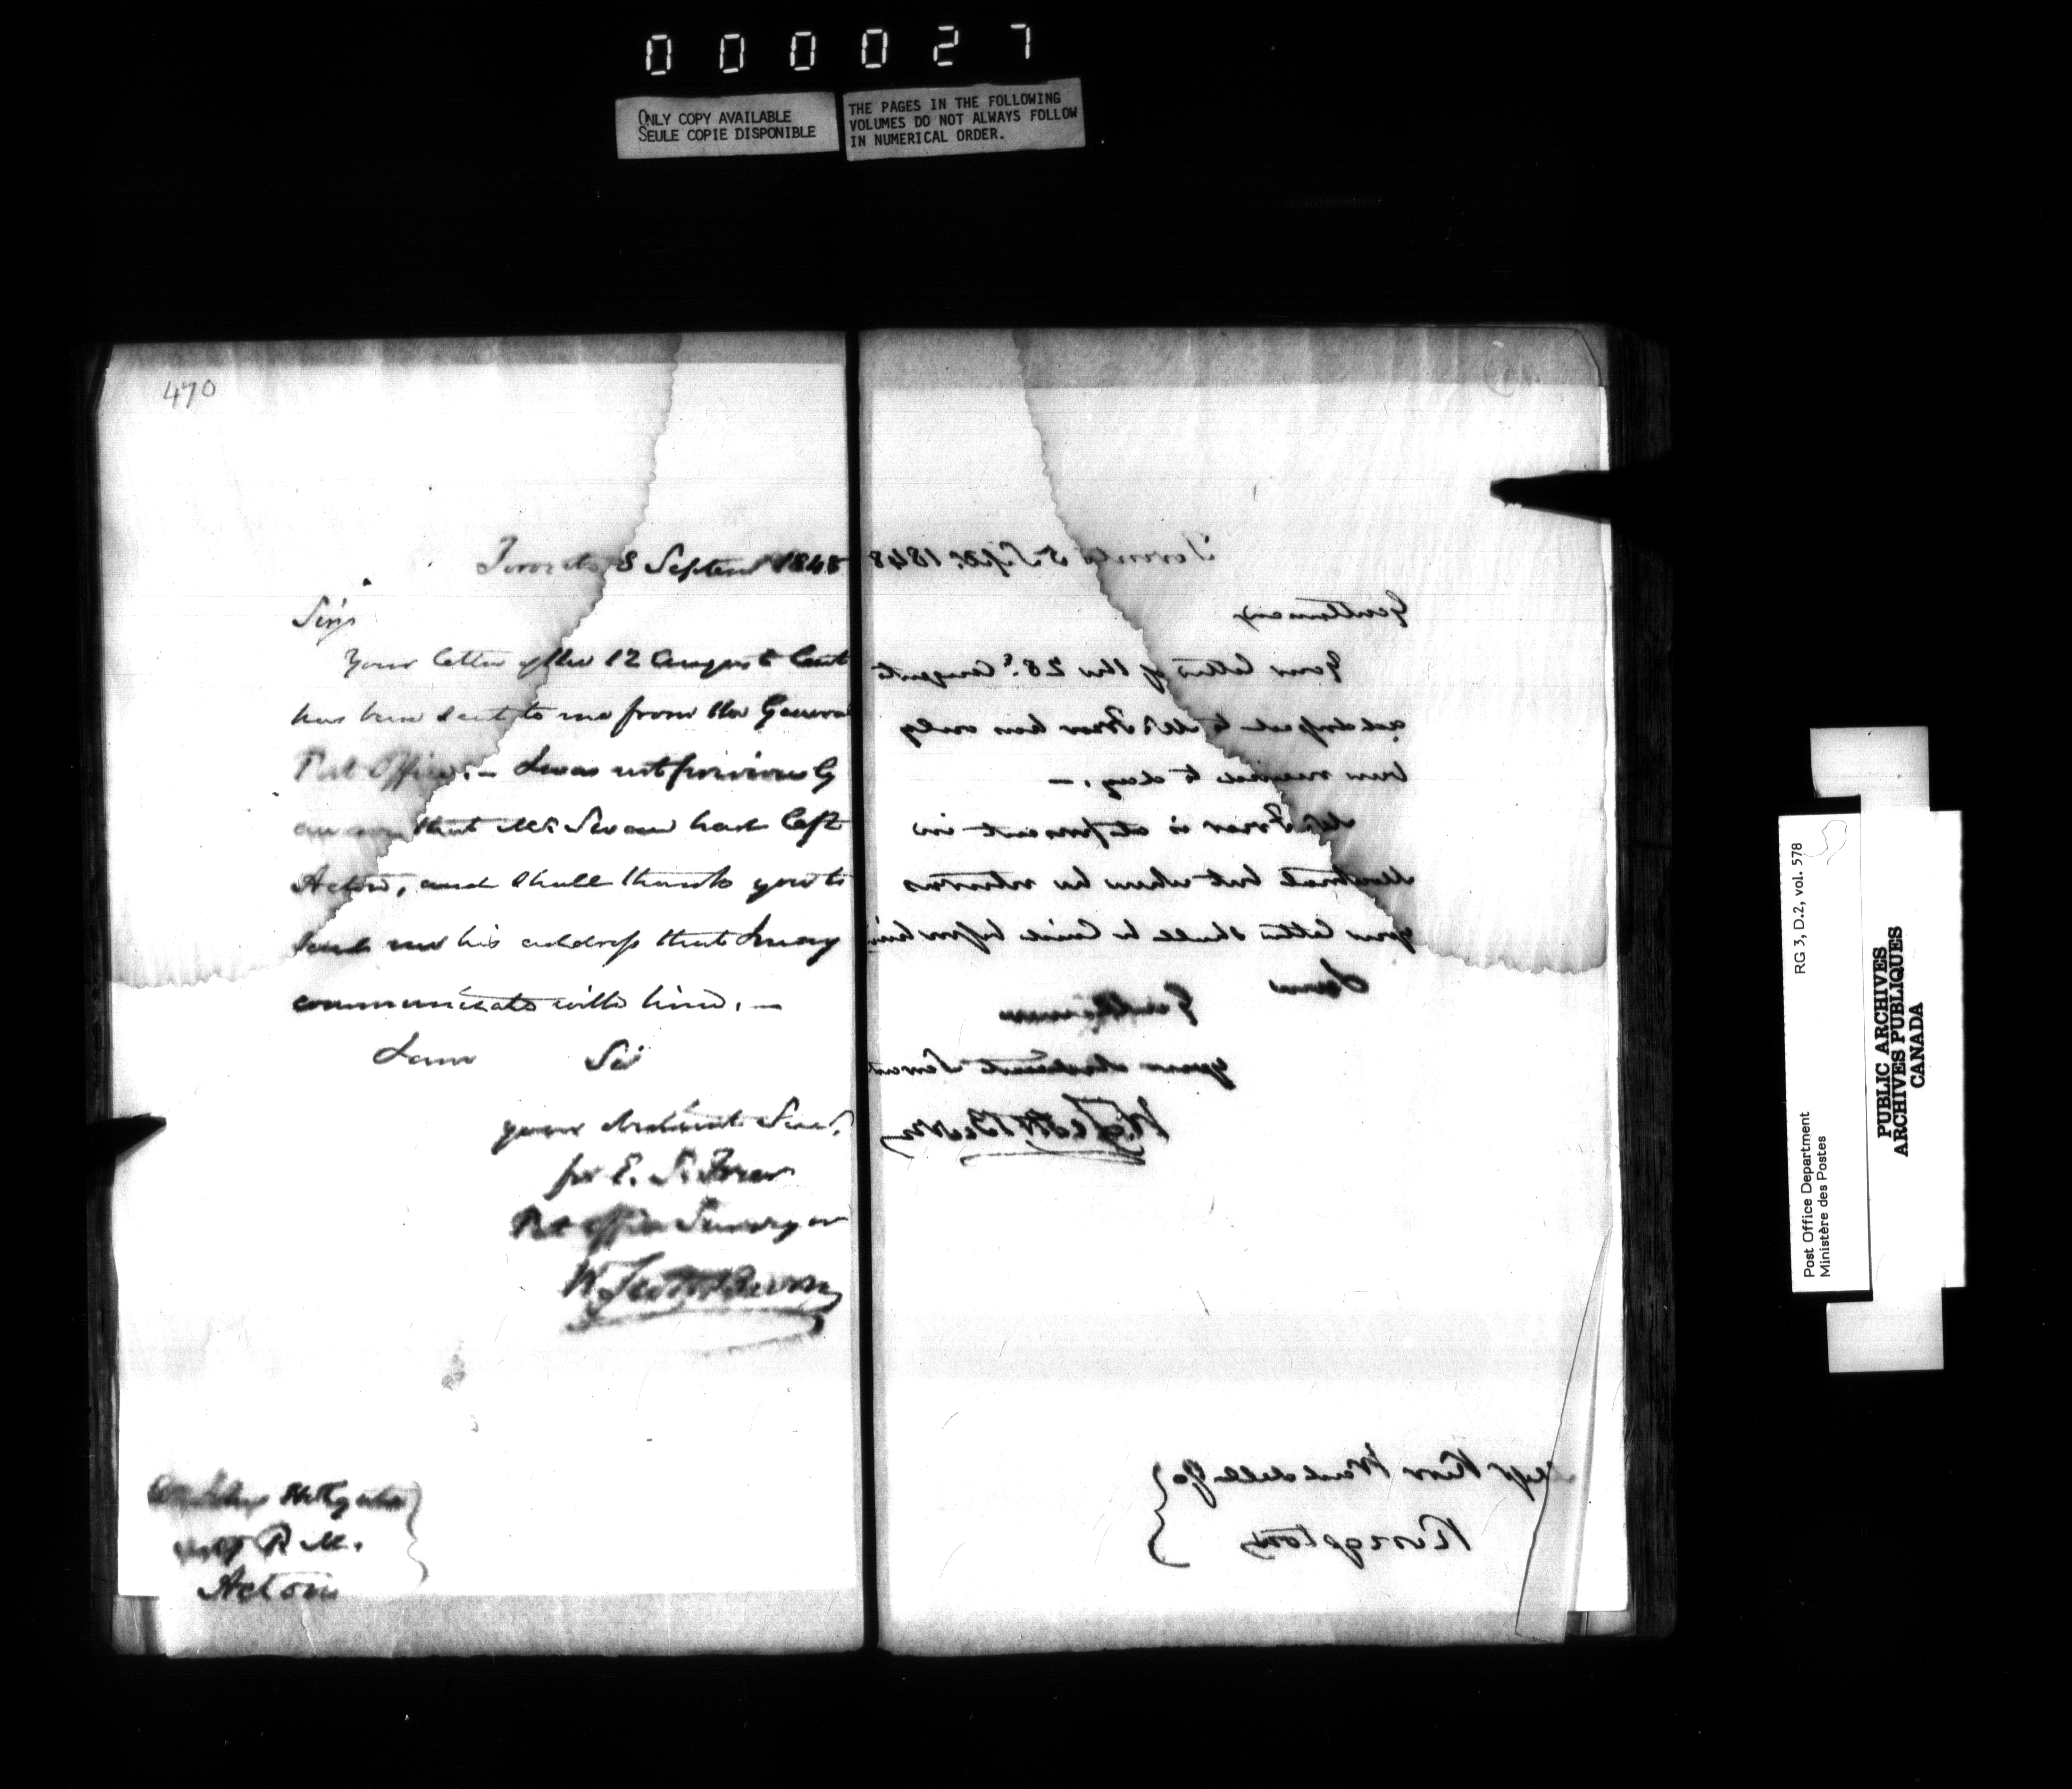 000027
ONLY COPY AVAILABLE
SEULE COPIE DISPONIBLE
THE PAGES IN THE FOLLOWING
VOLUMES DO NOT ALWAYS FOLLOW
IN NUMERICAL ORDER.
470
Toronto 8 Septem 1848
Sir,
Your letter of the 12 August last
has been sent to me from the General
Post Office. — I was not previously
aware that Mr Swan had left
Acton, and shall thank you to
send me his address that I may
communicate with him. —
I am Sir
your obedient Serv.
for E. S. Freer
Post Office Surveyor
W. Scott Burn
P. M.
Acton
Toronto 5 Sept. 1848
Gentlemen
Your letter of the 28th August
addressed to Mr Freer has only
been received to day. —
Mr Freer is at present in
Montreal but when he returns
your letter shall be laid before him
I am
Gentlemen
your obedient Servant
W. Scott Burn
Kingston
RG 3, D.2, vol. 578
Post Office Department
Ministère des Postes
PUBLIC ARCHIVES
ARCHIVES PUBLIQUES
CANADA